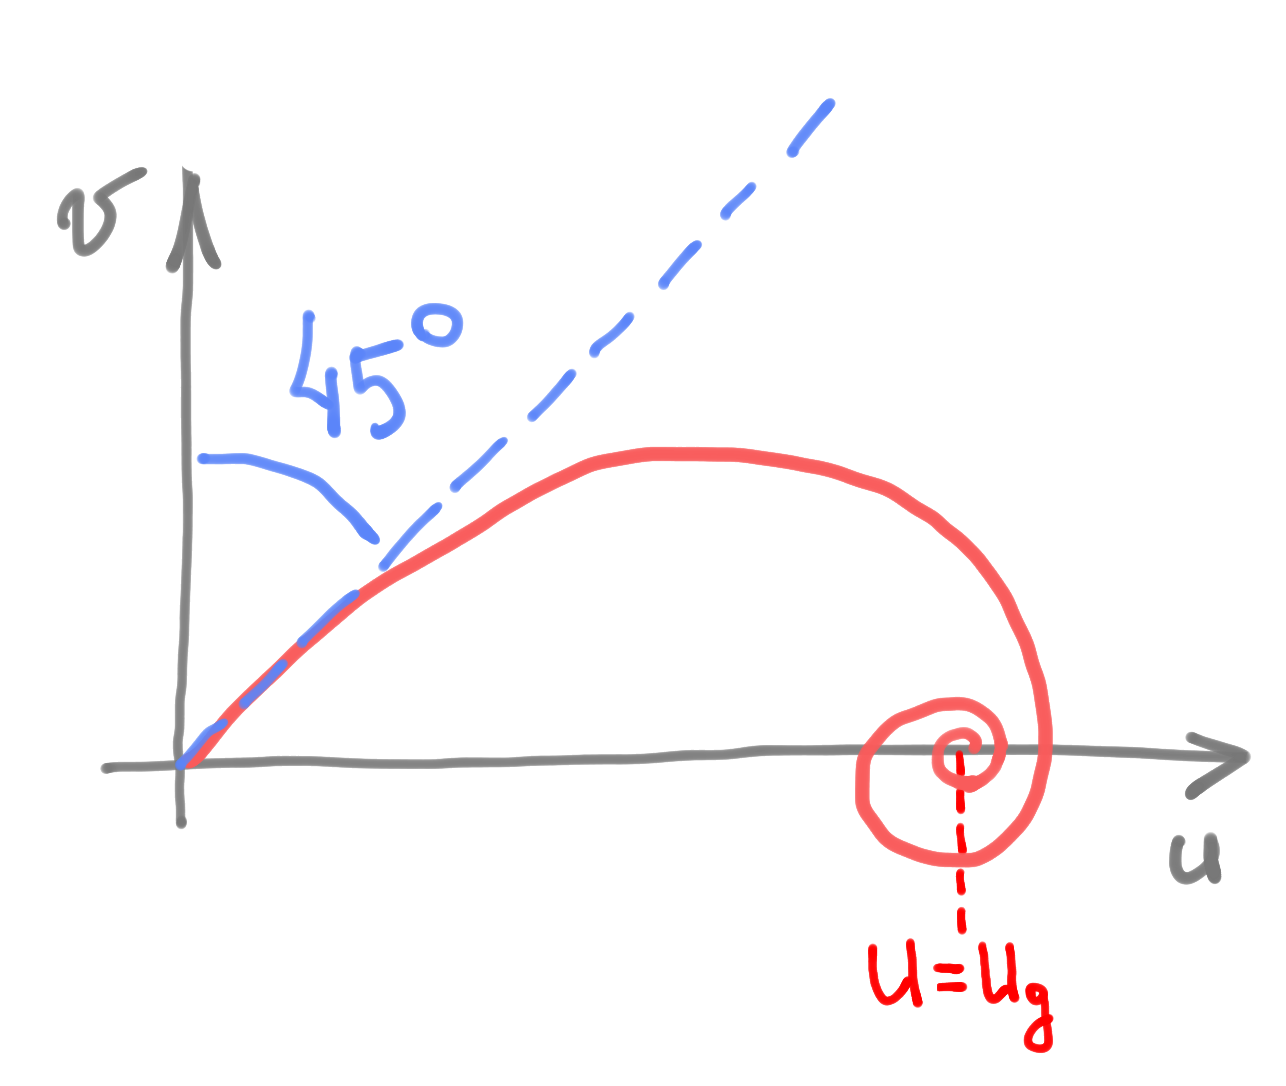 v
45°
u
u=u_g